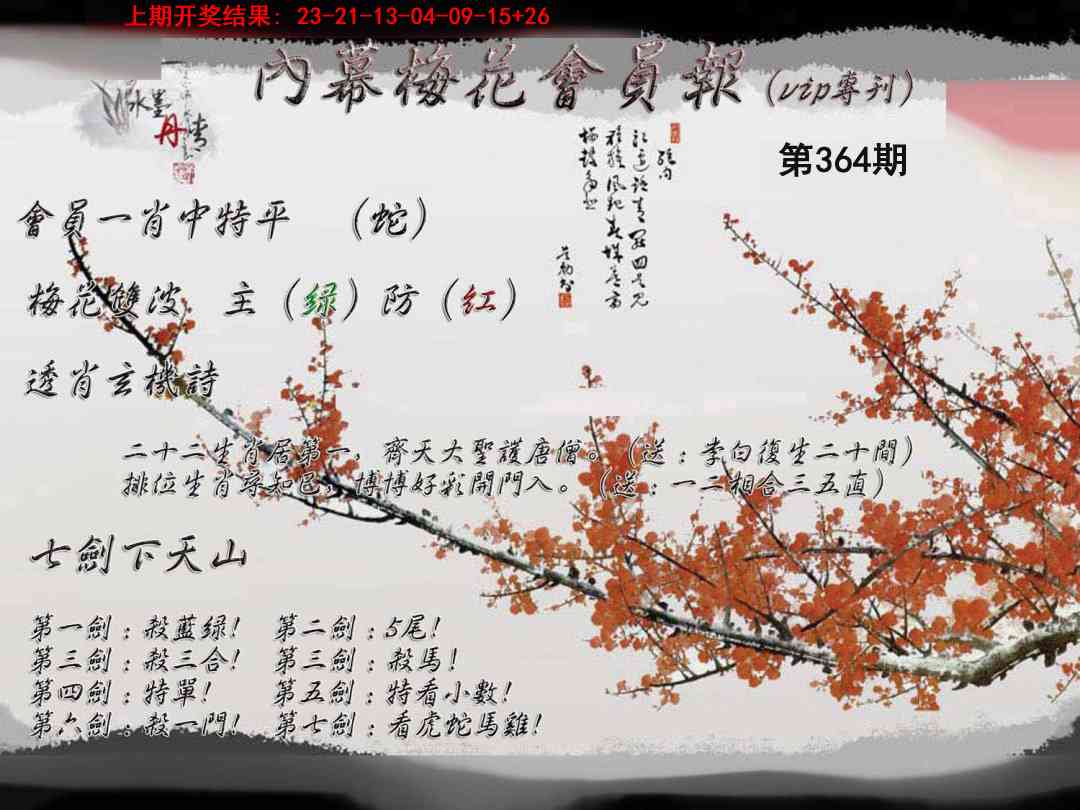 上期开奖结果: 23-21-13-04-09-15+26
內幕梅花會員報(vip專刊)
水墨
丹青
第364期
會員一肖中特平 (蛇)
梅花雙波 主(绿)防(红)
透肖玄機詩
二十二生肖居第一,齊天大聖護唐僧。(送:李白復生二十間)
排位生肖字知己,博博好彩開門入。(送:一二相合三五直)
七劍下天山
第一劍:殺藍绿! 第二劍:5尾!
第三劍:殺三合! 第三劍:殺馬!
第四劍:特單! 第五劍:特看小數!
第六劍:殺一門! 第七劍:看虎蛇馬雞!